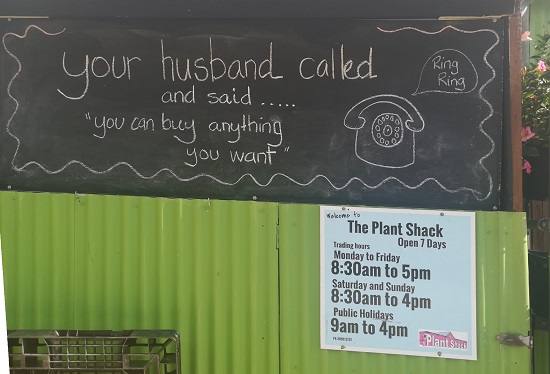 your husband called
and said .....
"you can buy anything
you want"
Ring
Ring
Welcome to
The Plant Shack
Open 7 Days
Trading hours
Monday to Friday
8:30am to 5pm
Saturday and Sunday
8:30am to 4pm
Public Holidays
9am to 4pm
Plant Shack